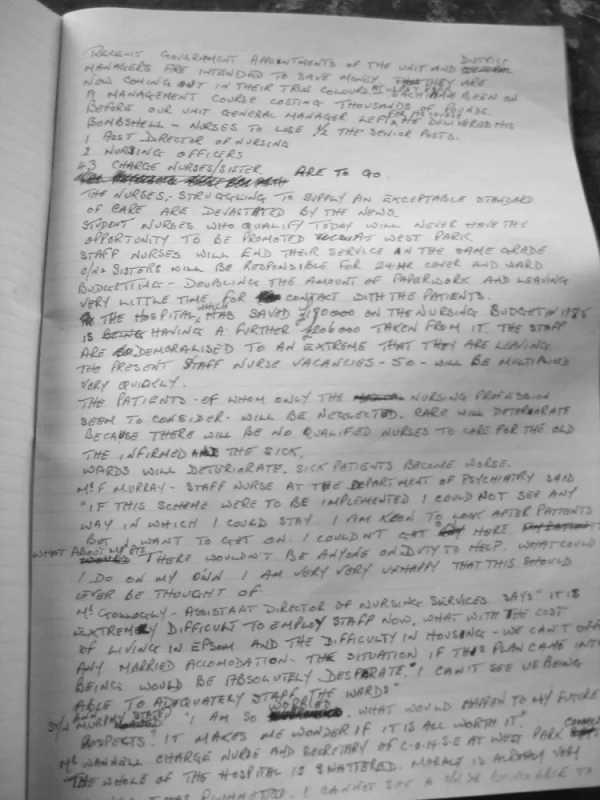 RECENT GOVERNMENT APPOINTMENTS OF THE UNIT AND DISTRICT
MANAGERS ARE INTENDED TO SAVE MONEY THEY ARE
NOW COMING OUT IN THEIR TRUE COLOURS. EACH HAVE BEEN ON
A MANAGEMENT COURSE COSTING THOUSANDS OF POUNDS.
BEFORE OUR UNIT GENERAL MANAGER LEFT FOR HIS COURSE HE DELIVERED HIS
BOMBSHELL - NURSES TO LOSE 1/2 THE SENIOR POSTS.
1 ASST DIRECTOR OF NURSING
2 NURSING OFFICERS
43 CHARGE NURSES/SISTER ARE TO GO.
THE NURSES, - STRUGGLING TO SUPPLY AN EXCEPTABLE STANDARD
OF CARE ARE DEVASTATED BY THE NEWS.
STUDENT NURSES WHO QUALIFY TODAY WILL NEVER HAVE THE
OPPORTUNITY TO BE PROMOTED AT WEST PARK
STAFF NURSES WILL END THEIR SERVICE ON THE SAME GRADE
C/Ns SISTERS WILL BE RESPONSIBLE FOR 24HR COVER AND WARD
BUDGETTING - DOUBLING THE AMOUNT OF PAPERWORK AND LEAVING
VERY LITTLE TIME FOR CONTACT WITH THE PATIENTS.
THE HOSPITAL WHICH HAS SAVED £180000 ON THE NURSING BUDGET IN 1985
IS HAVING A FURTHER £206000 TAKEN FROM IT. THE STAFF
ARE SO DEMORALISED TO AN EXTREME THAT THEY ARE LEAVING.
THE PRESENT STAFF NURSE VACANCIES - 50 - WILL BE MULTIPLIED
VERY QUICKLY.
THE PATIENTS - OF WHOM ONLY THE NURSING PROFESSION
SEEM TO CONSIDER - WILL BE NEGLECTED. CARE WILL DETERIORATE
BECAUSE THERE WILL BE NO QUALIFIED NURSES TO CARE FOR THE OLD
THE INFIRMED AND THE SICK.
WARDS WILL DETERIORATE. SICK PATIENTS BECOME WORSE.
Mr F MURRAY - STAFF NURSE AT THE DEPARTMENT OF PSYCHIATRY SAID
"IF THIS SCHEME WERE TO BE IMPLEMENTED I COULD NOT SEE ANY
WAY IN WHICH I COULD STAY. I AM KEEN TO LOOK AFTER PATIENTS
BUT I WANT TO GET ON. I COULDN'T GET ON HERE.
WHAT ABOUT MY PTS THERE WOULDN'T BE ANYONE ON DUTY TO HELP. WHAT COULD
I DO ON MY OWN I AM VERY VERY UNHAPPY THAT THIS SHOULD
EVER BE THOUGHT OF
Mr GOLLOGLY - ASSISTANT DIRECTOR OF NURSING SERVICES SAYS "IT IS
EXTREMELY DIFFICULT TO EMPLOY STAFF NOW. WHAT WITH THE COST
OF LIVING IN EPSOM AND THE DIFFICULTY IN HOUSING - WE CAN'T OFF
ANY MARRIED ACCOMODATION. THE SITUATION IF THIS PLAN CAME INTO
BEING WOULD BE ABSOLUTELY DESPERATE." I CAN'T SEE US BEING
ABLE TO ADEQUATELY STAFF THE WARDS"
S/N ANN MURPHY STATED "I AM SO WORRIED. WHAT WOULD HAPPEN TO MY FUTURE
PROSPECTS? IT MAKES ME WONDER IF IT IS ALL WORTH IT."
Mr WANNELL CHARGE NURSE AND SECRETARY OF C.O.H.S.E AT WEST PARK
"THE WHOLE OF THE HOSPITAL IS SHATTERED. MORALE IS ALREADY VERY
I CANNOT SEE A